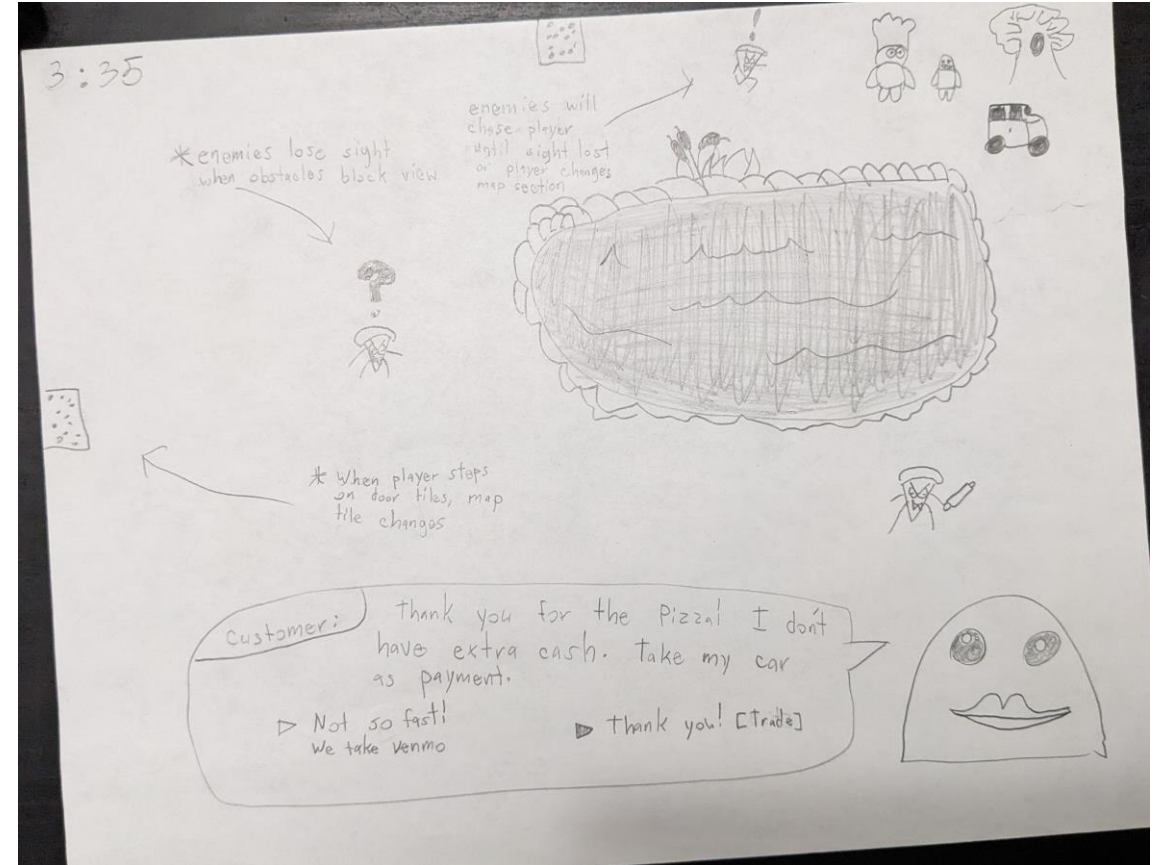 3:35
*enemies lose sight
when obstacles block view
enemies will
chase player
until sight lost
or player changes
map section
!
* When player steps
on door tiles, map
tile changes
Customer:
Thank you for the Pizza! I don't
have extra cash. Take my car
as payment.
▷ Not so fast!
We take Venmo
▶ Thank you! [Trade]